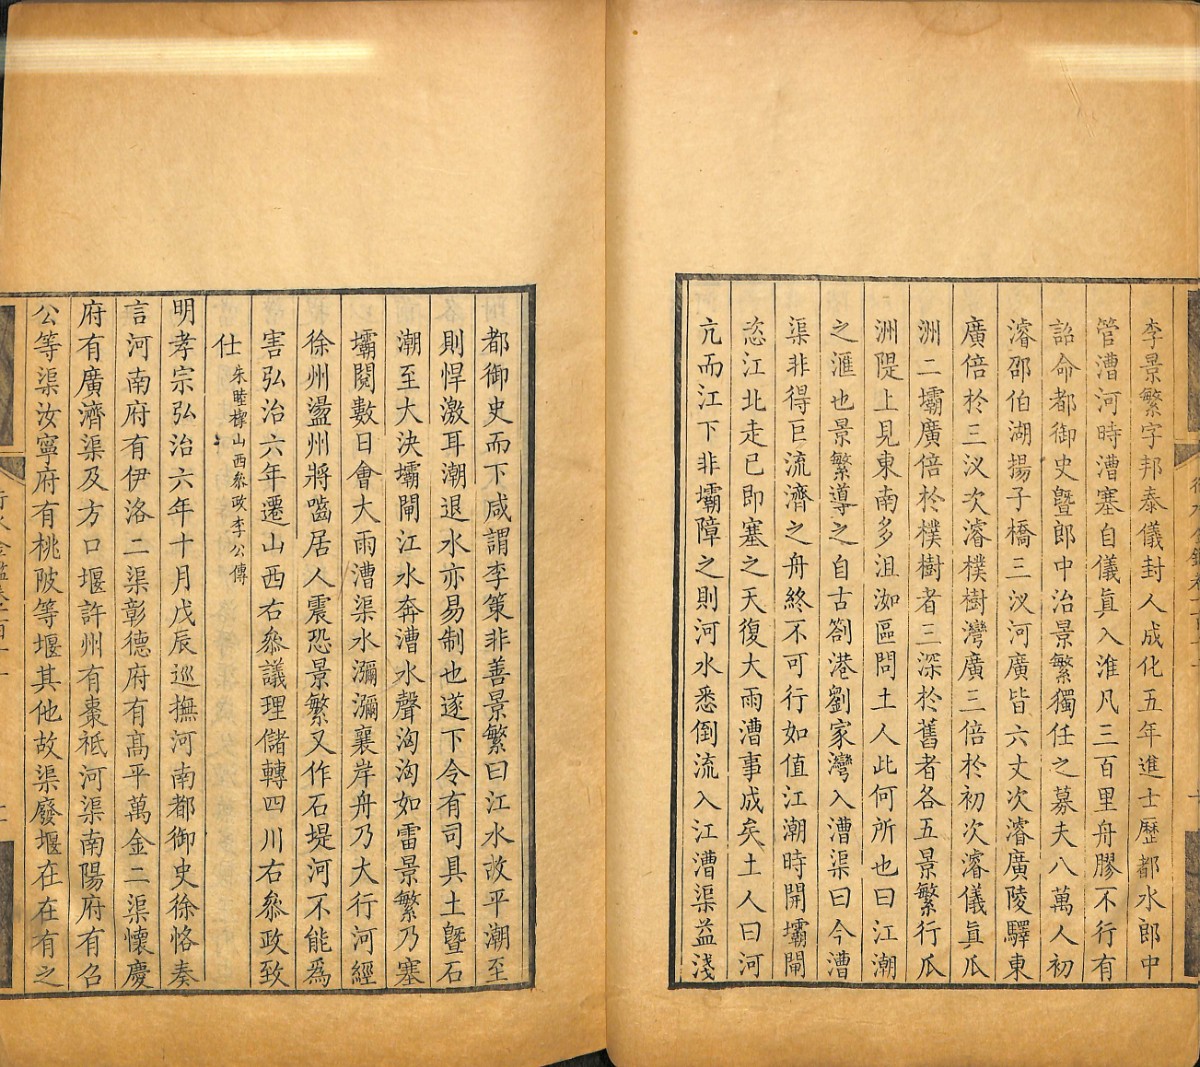 李景繁字邦泰儀封人成化五年進士歷都水郎中
管漕河時漕塞自儀眞入淮凡三百里舟膠不行有
詔命都御史曁郎中治景繁獨任之募夫八萬人初
濬邵伯湖揚子橋三汊河廣皆六丈次濬廣陵驛東
廣倍於三汊次濬樸樹灣廣三倍於初次濬儀眞瓜
洲二壩廣倍於樸樹者三深於舊者各五景繁行瓜
洲隄上見東南多沮洳區問土人此何所也曰江潮
之滙也景繁導之自古劄港劉家灣入漕渠曰今漕
渠非得巨流濟之舟終不可行如值江潮時開壩閘
恣江北走已即塞之天復大雨漕事成矣土人曰河
亢而江下非壩障之則河水悉倒流入江漕渠益淺
都御史而下咸謂李策非善景繁曰江水故平潮至
則悍激耳潮退水亦易制也遂下令有司具土曁石
潮至大決壩閘江水奔漕水聲洶洶如雷景繁乃塞
壩閱數日會大雨漕渠水瀰瀰襄岸舟乃大行河經
徐州盪州將嚙居人震恐景繁又作石堤河不能爲
害弘治六年遷山西右叅議理儲轉四川右叅政致
仕朱睦㮮山西叅政李公傳
明孝宗弘治六年十月戊辰巡撫河南都御史徐恪奏
言河南府有伊洛二渠彰德府有高平萬金二渠懷慶
府有廣濟渠及方口堰許州有棗祗河渠南陽府有召
公等渠汝寧府有桃陂等堰其他故渠廢堰在在有之